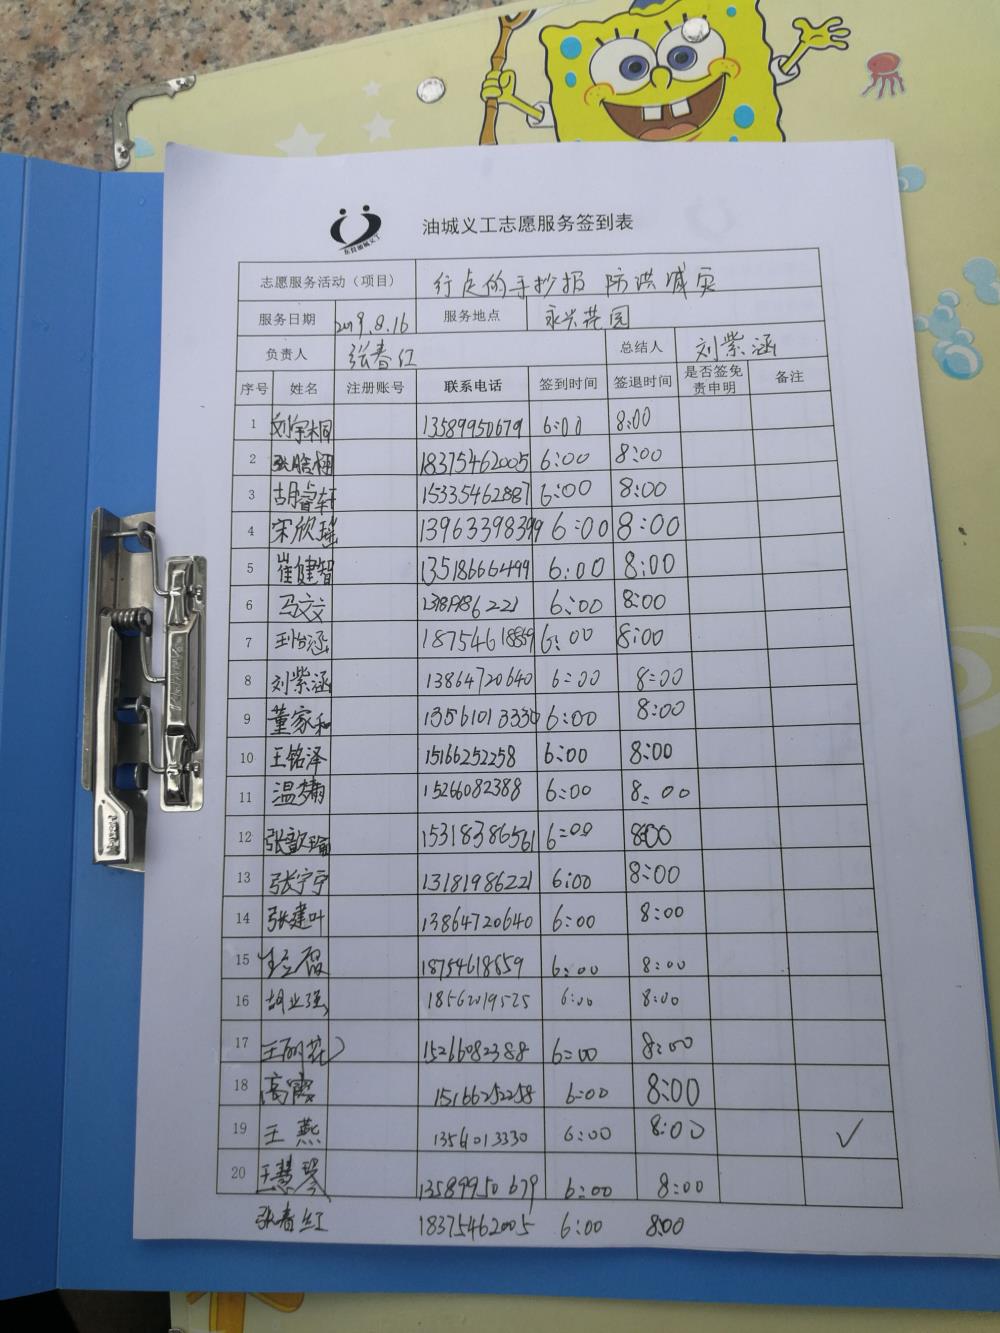 东营油城义工
油城义工志愿服务签到表
志愿服务活动（项目） 行走的手抄报 防洪减灾
服务日期 2019.8.16 服务地点 永兴花园
负责人 张春红 总结人 刘紫涵
序号 姓名 注册账号 联系电话 签到时间 签退时间 是否签免责申明 备注
1 刘宇桐 13589950679 6:00 8:00
2 张皓栩 18375462005 6:00 8:00
3 胡睿轩 15335462887 6:00 8:00
4 宋欣瑶 13963398399 6:00 8:00
5 崔健智 13518666499 6:00 8:00
6 马文文 13181986221 6:00 8:00
7 王怡涵 18754618859 6:00 8:00
8 刘紫涵 13864720640 6:00 8:00
9 董家和 13561013330 6:00 8:00
10 王铭泽 15166252258 6:00 8:00
11 温梦 15266082388 6:00 8:00
12 张歆瑜 15318386561 6:00 8:00
13 张宁宁 13181986221 6:00 8:00
14 张建叶 13864720640 6:00 8:00
15 18754618859 6:00 8:00
16 胡业强 18562019525 6:00 8:00
17 王丽花 15266082388 6:00 8:00
18 高霞 15166252258 6:00 8:00
19 王燕 1356013330 6:00 8:00 ✓
20 王慧琴 13589950679 6:00 8:00
张春红 18375462005 6:00 8:00